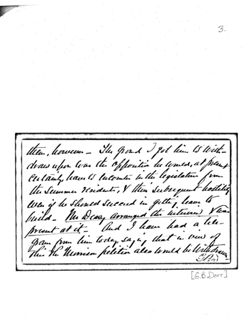 3
them, however – The ground I got him to with-
draw upon was the opposition he would, at present
certainly have to encounter in the legislature from
the summer residents, & their subsequent hostility
even if he should succeed in getting leave to
build. Mr Deasy arranged the interview & was
present at it – And I have had a tele-
gram from him today saying that in view of
this the Morrison petition also would be withdrawn
[G.B. Dorr]